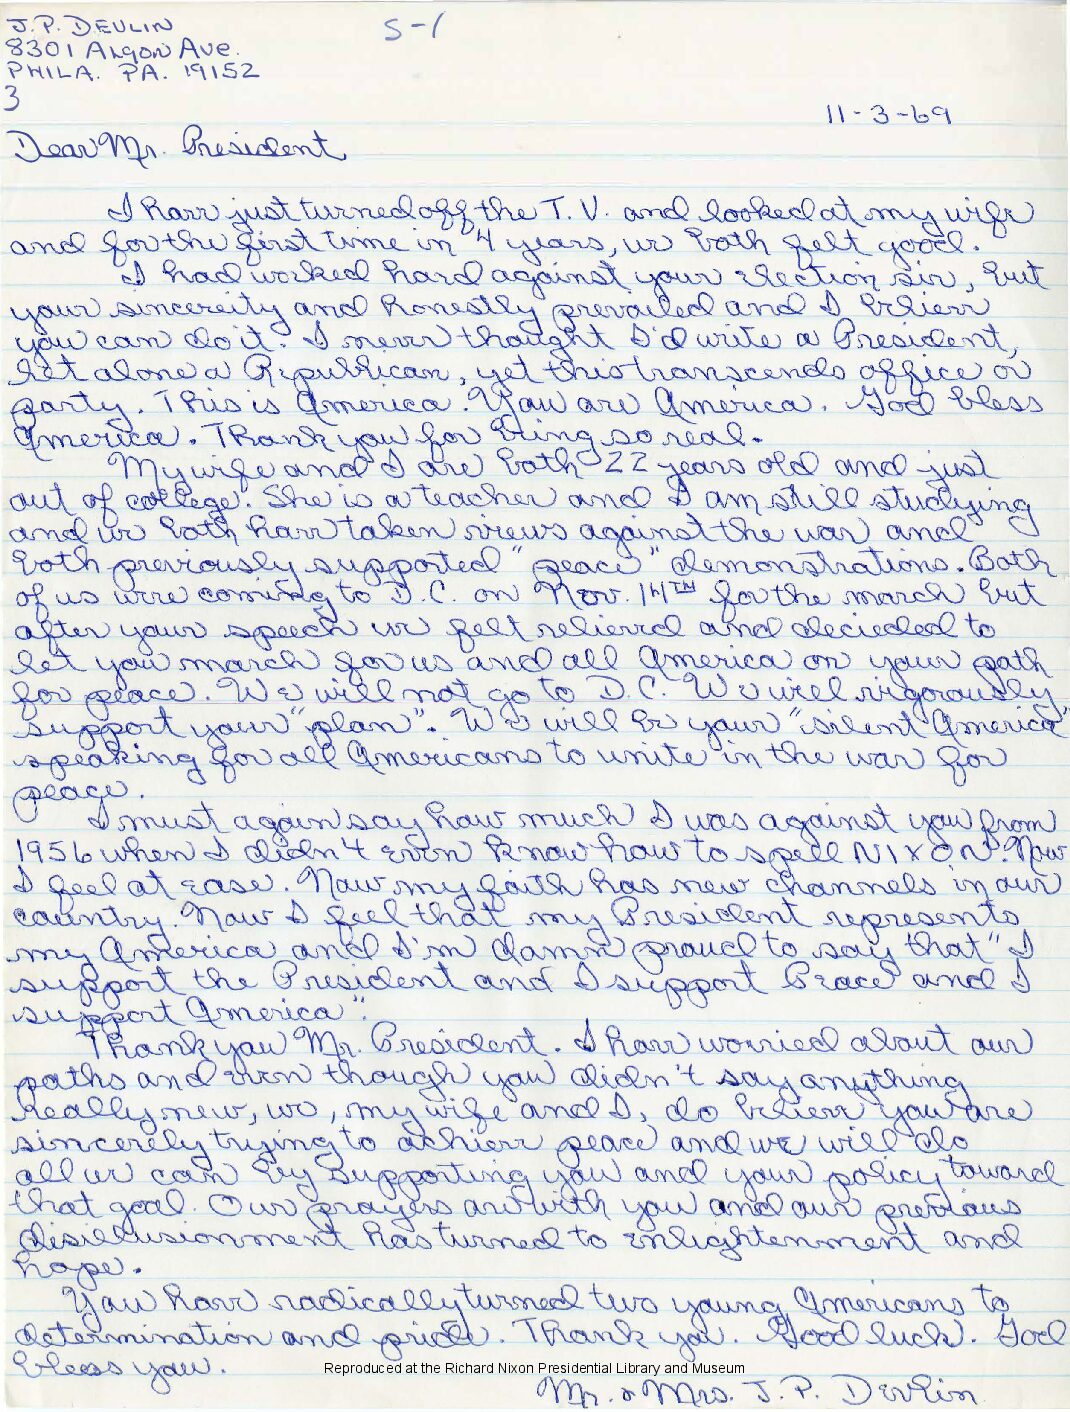 J.P. DEVLIN
S-1
8301 ALGON AVE.
PHILA. PA. 19152
3
11-3-69
Dear Mr. President,
I have just turned off the T.V. and looked at my wife
and for the first time in 4 years, we both felt good.
I had worked hard against your election sir, but
your sincereity and honestly prevailed and I believe
you can do it. I never thought I'd write a President,
let alone a Republican, yet this transcends office or
party. This is America. You are America. God bless
America. Thank you for being so real.
My wife and I are both 22 years old and just
out of college. She is a teacher and I am still studying
and we both have taken views against the war and
both previously supported "peace" demonstrations. Both
of us were coming to D.C. on Nov. 14TH for the march but
after your speech we felt relieved and decieded to
let you march for us and all America on your path
for peace. We will not go to D.C. We will vigorously
support your "plan". We will be your "silent America"
speaking for all Americans to unite in the war for
peace.
I must again say how much I was against you from
1956 when I didn't even know how to spell NIXON. Now
I feel at ease. Now my faith has new channels in our
country. Now I feel that my President represents
my America and I'm damn proud to say that "I
support the President and I support Peace and I
support America".
Thank you Mr. President. I have worried about our
paths and even though you didn't say anything
really new, we, my wife and I, do believe you are
sincerely trying to achieve peace and we will do
all we can by supporting you and your policy toward
that goal. Our prayers are with you and our previous
disillusionment has turned to enlightenment and
hope.
You have radically turned two young Americans to
determination and pride. Thank you. Good luck. God
bless you.
Reproduced at the Richard Nixon Presidential Library and Museum
Mr. & Mrs. J. P. Devlin